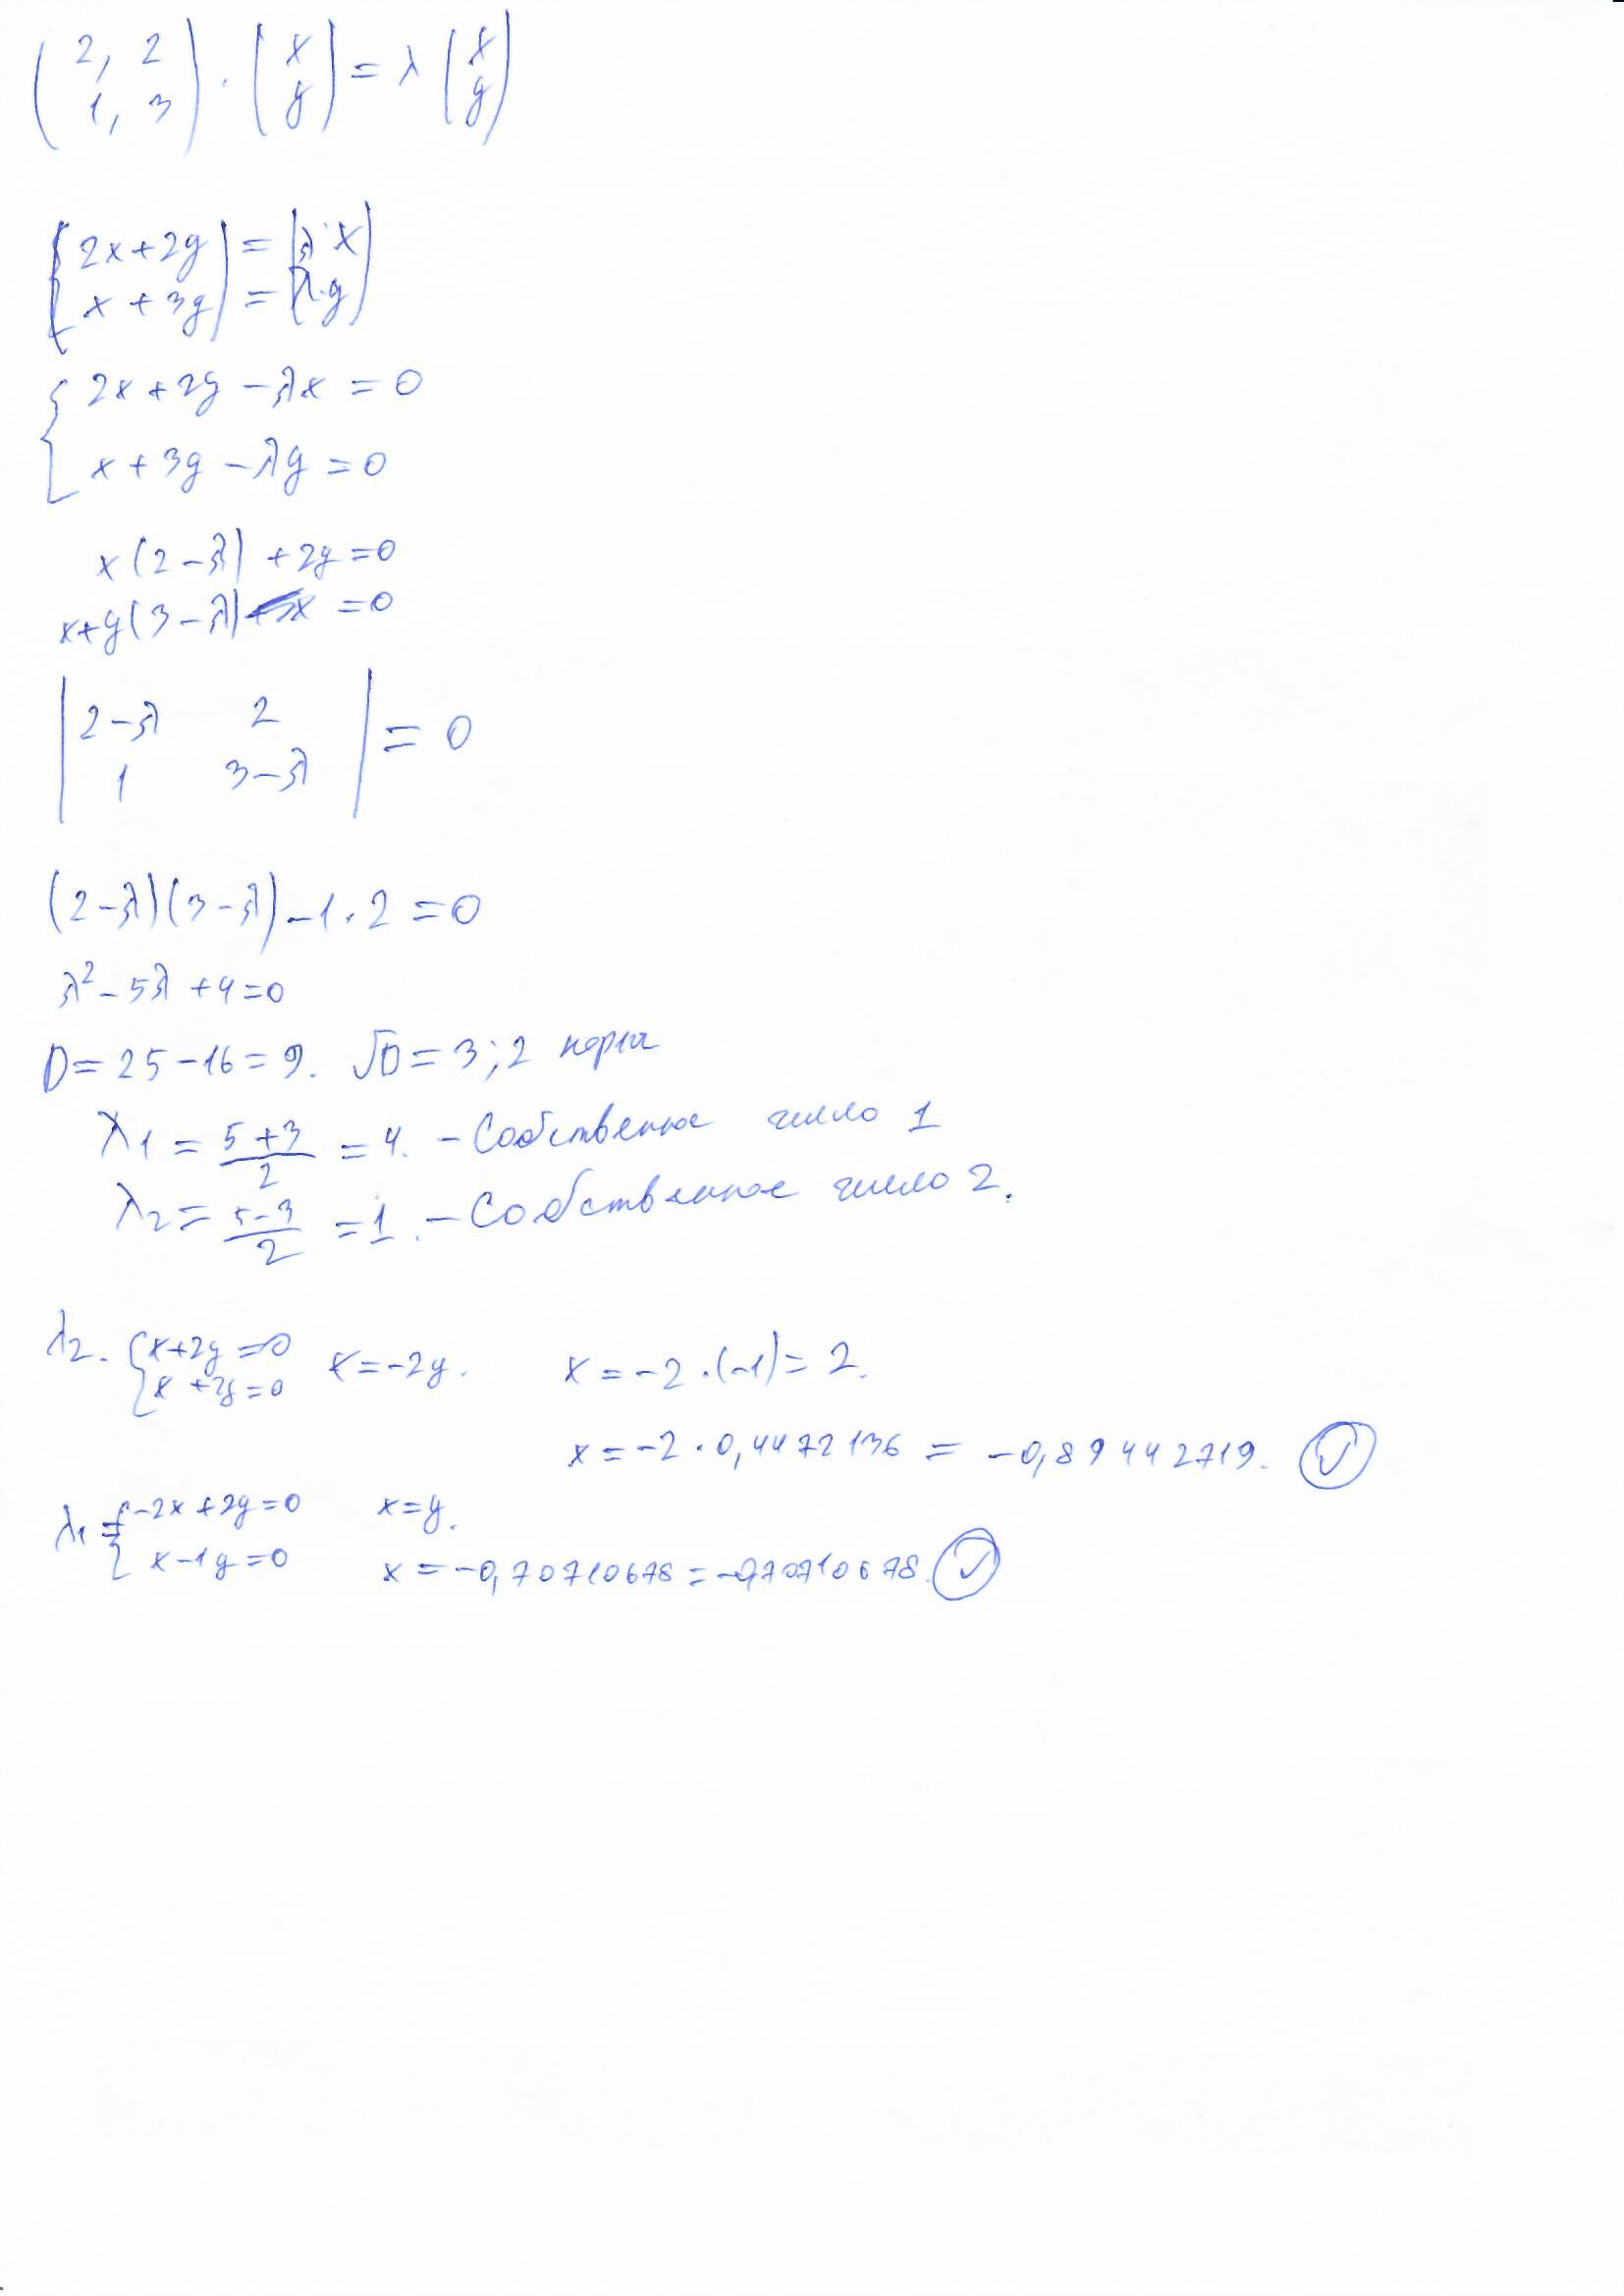 ( 2, 2 ) · ( x ) = λ ( x )
( 1, 3 ) ( y ) ( y )
2x + 2y = λ·x
x + 3y = λ·y
2x + 2y − λx = 0
x + 3y − λy = 0
x(2 − λ) + 2y = 0
x + y(3 − λ) = 0
| 2 − λ 2 | = 0
| 1 3 − λ |
(2 − λ)(3 − λ) − 1 · 2 = 0
λ² − 5λ + 4 = 0
D = 25 − 16 = 9. √D = 3; 2 корня
λ1 = (5 + 3)/2 = 4. − Собственное число 1
λ2 = (5 − 3)/2 = 1. − Собственное число 2.
λ2. { x + 2y = 0 x = −2y. x = −2 · (−1) = 2.
{ x + 2y = 0
x = −2 · 0,4472136 = −0,89442719. ✓
λ1 = { −2x + 2y = 0 x = y.
{ x − 1y = 0 x = −0,70710678 = −0,70710678. ✓